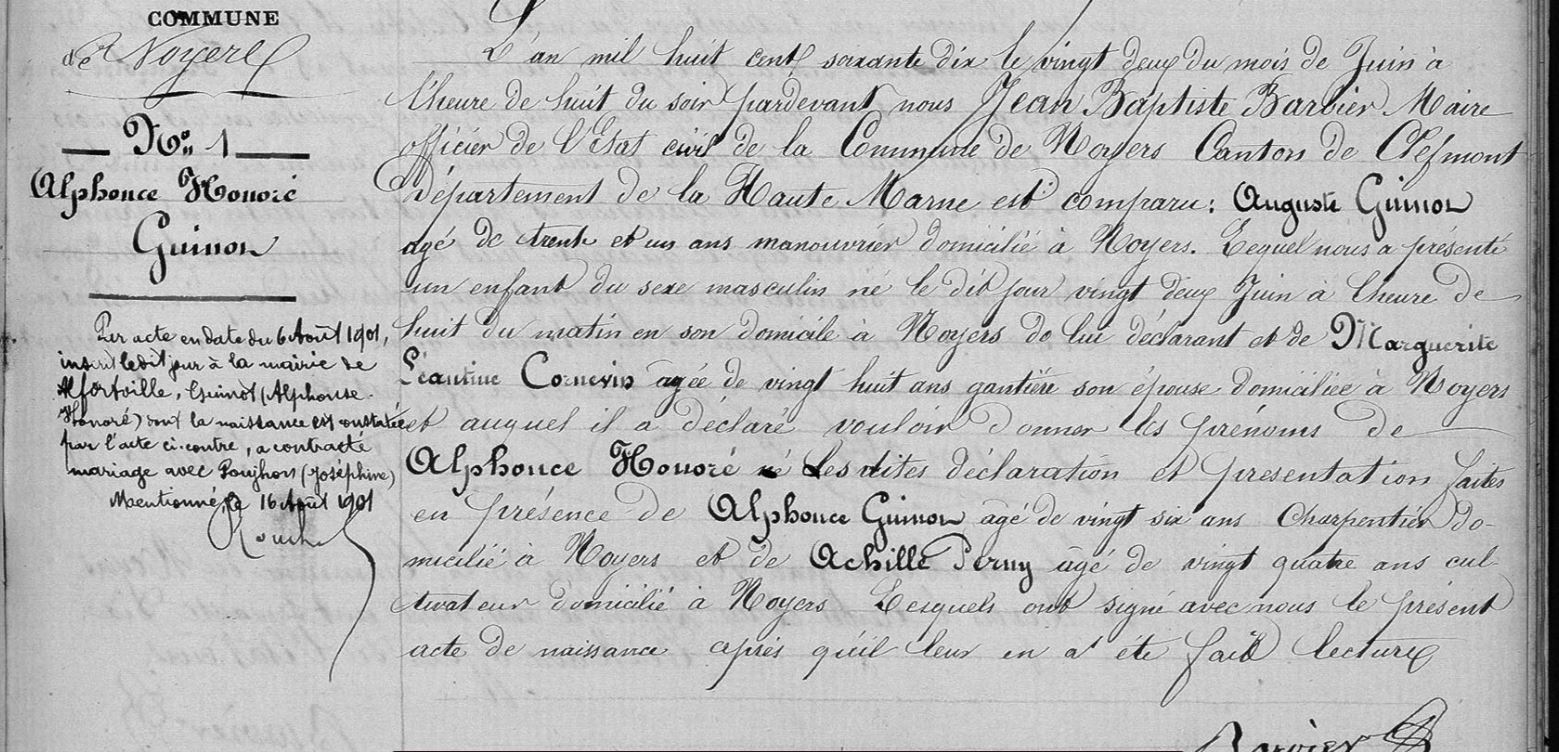 COMMUNE
de Noyers
No. 1
Alphonce Honoré
Guinon
Par acte en date du 6 Août 1901,
inscrit ledit jour à la mairie de
Alfortville, Guinot (Alphonse
Honoré) dont la naissance est constatée
par l'acte ci-contre, a contracté
mariage avec (Joséphine)
Mentionné, le 16 Août 1901
L'an mil huit cent soixante dix le vingt deux du mois de Juin à
l'heure de huit du soir pardevant nous Jean Baptiste Barbier Maire
officier de l'Etat civil de la Commune de Noyers Canton de Clefmont
Département de la Haute Marne est comparu: Auguste Guinon
agé de trente et un ans manouvrier domicilié à Noyers. Lequel nous a présenté
un enfant du sexe masculin né le dit jour vingt deux Juin à l'heure de
huit du matin en son domicile à Noyers de lui déclarant et de Marguerite
Léantine Cornevin agée de vingt huit ans gantière son épouse domiciliée à Noyers
et auquel il a déclaré vouloir donner les prénoms de
Alphonce Honoré Les dites déclaration et presentation faites
en présence de Alphonce Guinon agé de vingt six ans Charpentier do-
micilié à Noyers et de Achille Perny âgé de vingt quatre ans cul-
tivateur domicilié à Noyers Lesquels ont signé avec nous le présent
acte de naissance après qu'il leur en a été fait lecture
Barbier